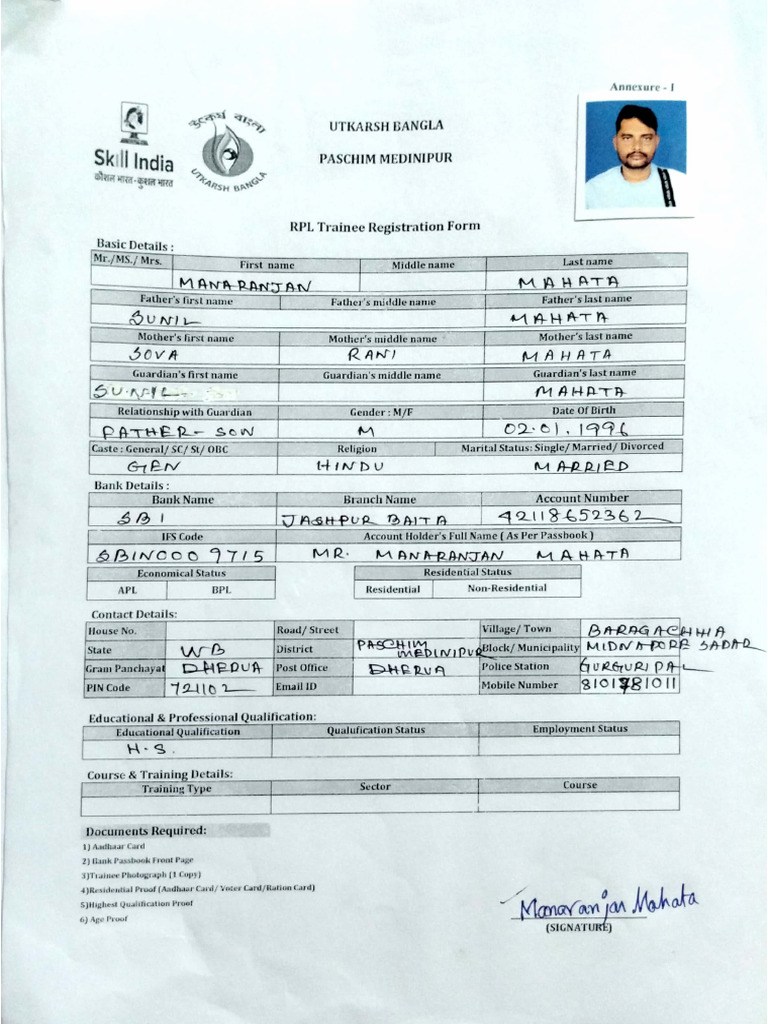 Annexure - I
उत्कर्ष बांग्ला
UTKARSH BANGLA
Skill India
कौशल भारत-कुशल भारत
UTKARSH BANGLA
PASCHIM MEDINIPUR
RPL Trainee Registration Form
Basic Details :
Mr./MS./ Mrs. First name Middle name Last name
MANARANJAN MAHATA
Father's first name Father's middle name Father's last name
SUNIL MAHATA
Mother's first name Mother's middle name Mother's last name
SOVA RANI MAHATA
Guardian's first name Guardian's middle name Guardian's last name
SUNIL MAHATA
Relationship with Guardian Gender : M/F Date Of Birth
FATHER - SON M 02.01.1996
Caste : General/ SC/ St/ OBC Religion Marital Status: Single/ Married/ Divorced
GEN HINDU MARRIED
Bank Details :
Bank Name Branch Name Account Number
SBI JASHPUR BAITA 42118652362
IFS Code Account Holder's Full Name ( As Per Passbook )
SBIN000 9715 MR. MANARANJAN MAHATA
Economical Status Residential Status
APL BPL Residential Non-Residential
Contact Details:
House No. Road/ Street Village/ Town BARAGACHHIA
State WB District PASCHIM MEDINIPUR Block/ Municipality MIDNAPORE SADAR
Gram Panchayat DHERUA Post Office DHERUA Police Station GURGURIPAL
PIN Code 721102 Email ID Mobile Number
Educational & Professional Qualification:
Educational Qualification Qualufication Status Employment Status
H.S.
Course & Training Details:
Training Type Sector Course
Documents Required:
1) Aadhaar Card
2) Bank Passbook Front Page
3)Trainee Photograph (1 Copy)
4)Residential Proof (Andhaar Card/ Voter Card/Ration Card)
5)Highest Qualification Proof
6) Age Proof
Manaranjan Mahata
(SIGNATURE)